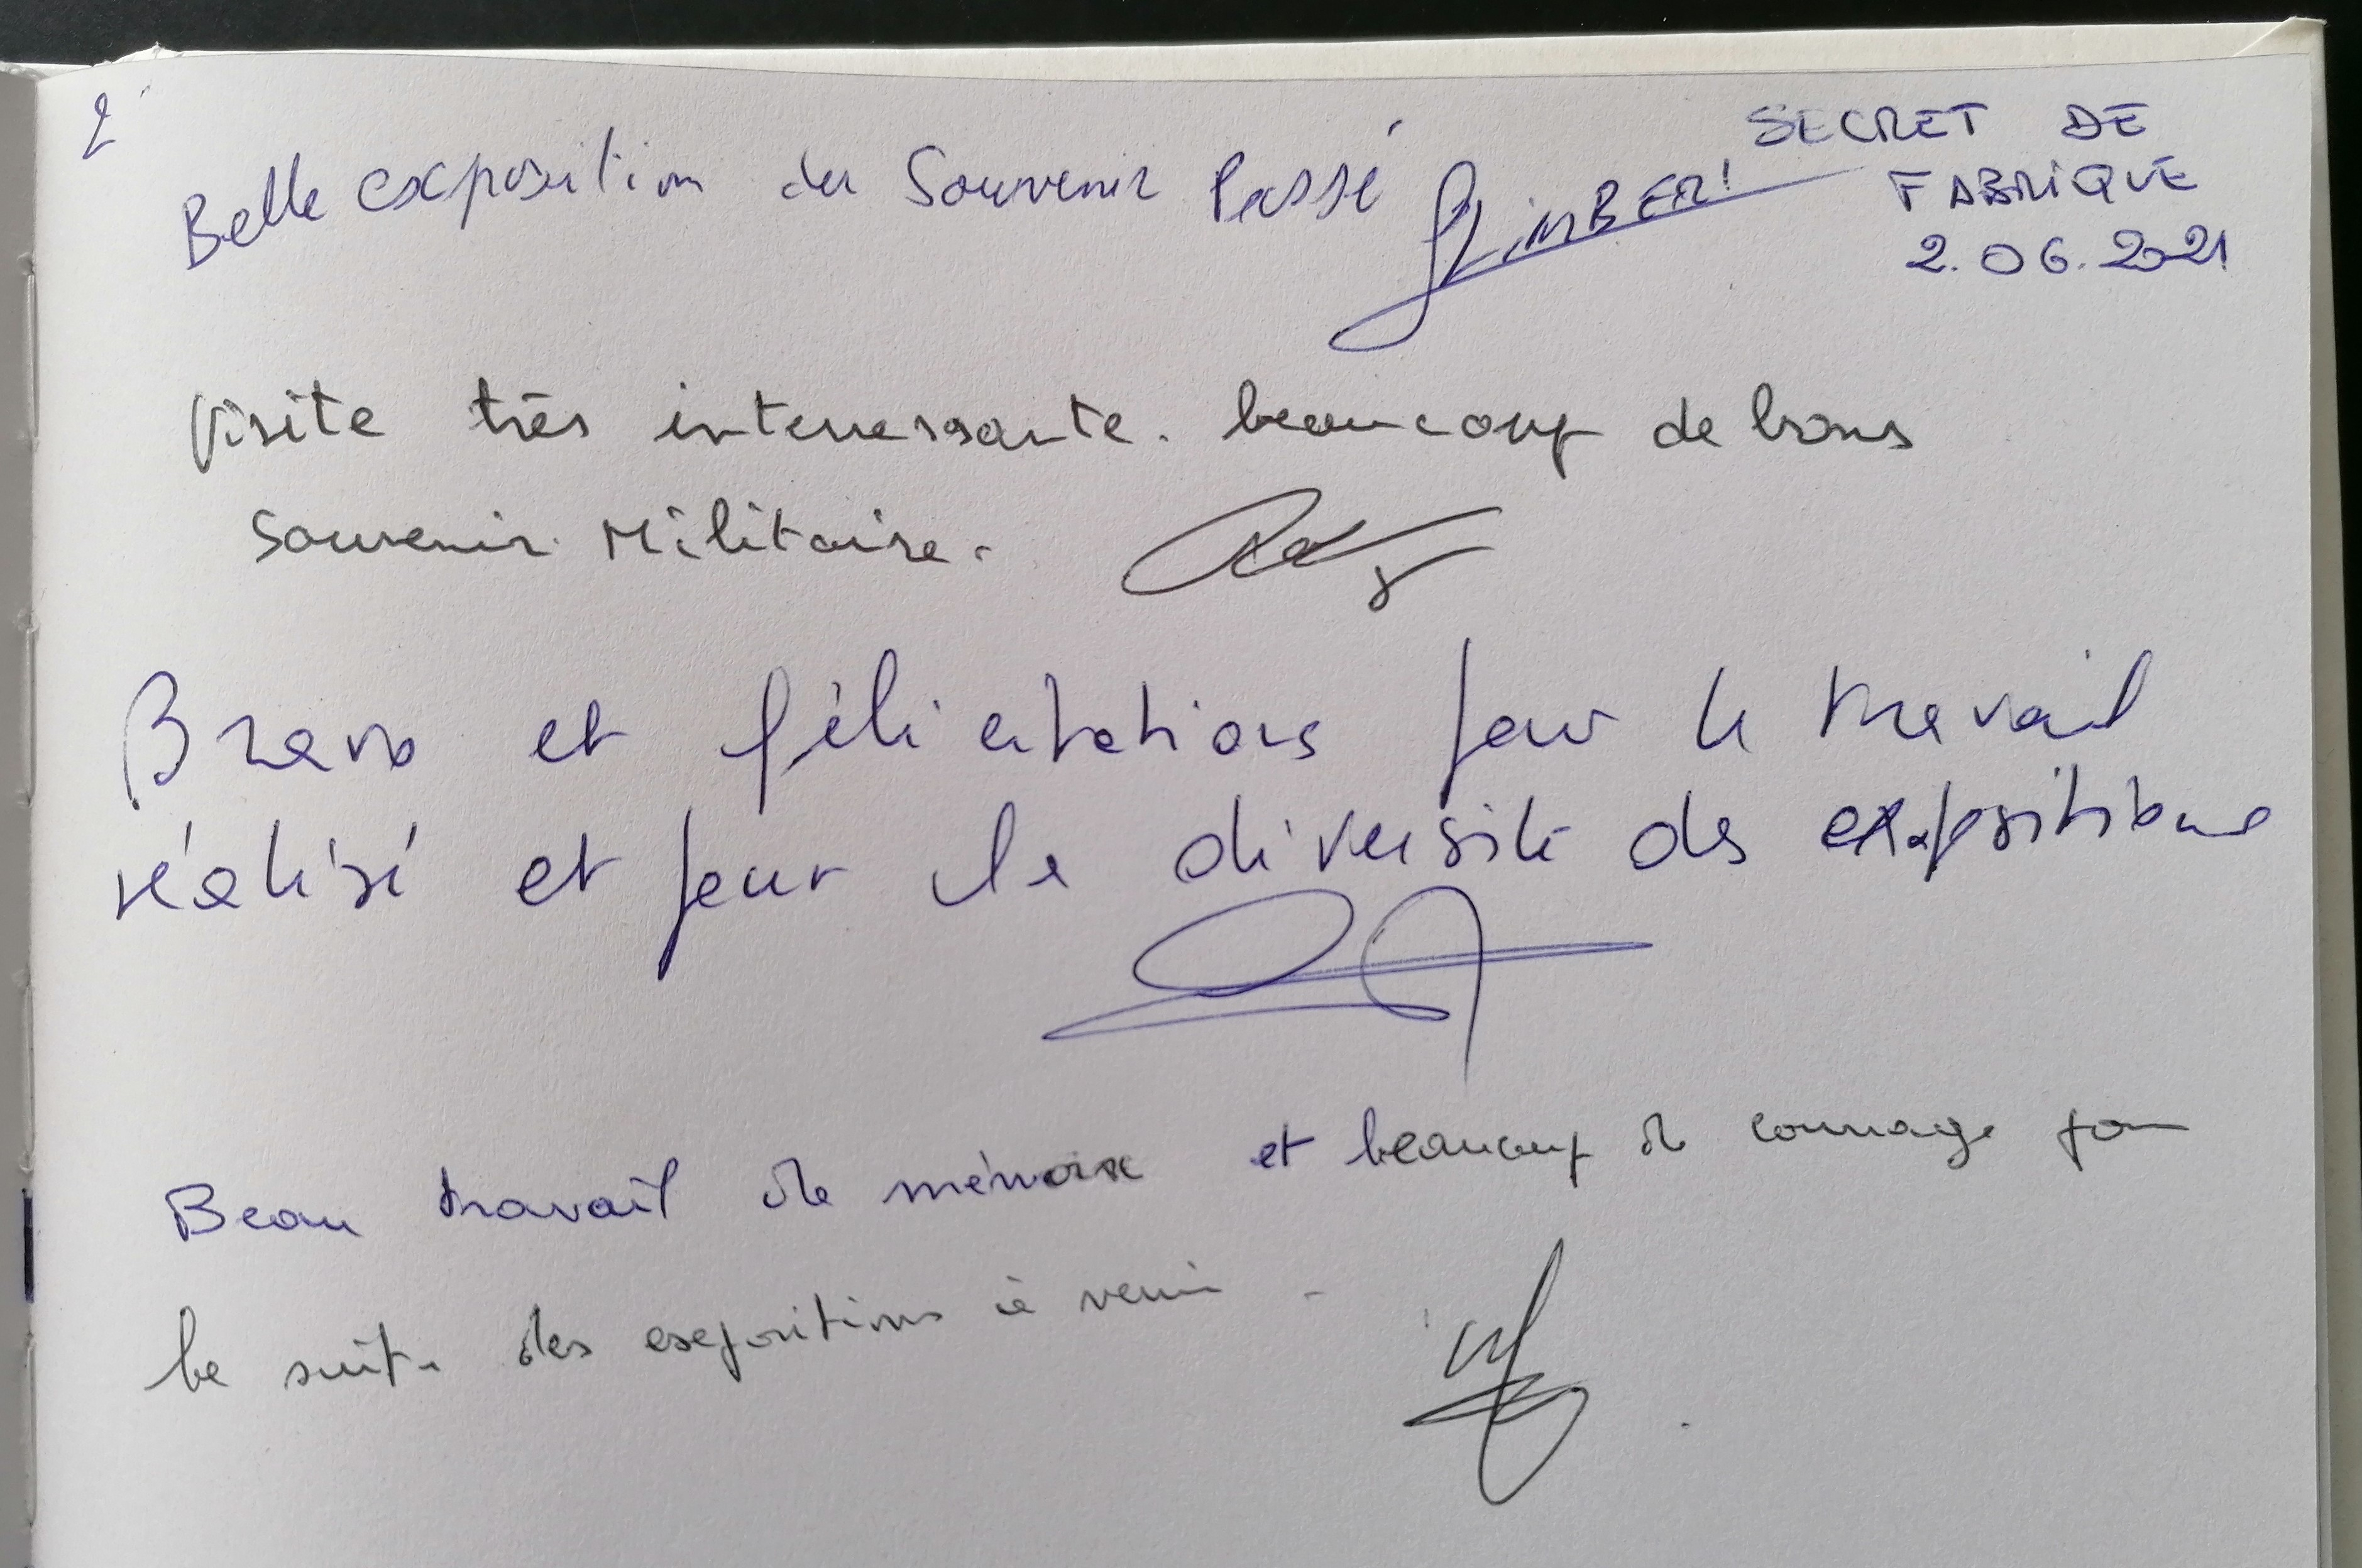 2
SECRET DE
FABRIQUE
2.06.2021
Belle exposition du Souvenir Passé
Visite très interressante. beaucoup de bons
Souvenir Militaire.
Bravo et félicitations pour le travail
réalisé et pour la diversité des expositions
Beau travail de mémoire et beaucoup de courage pour
la suite des expositions à venir.